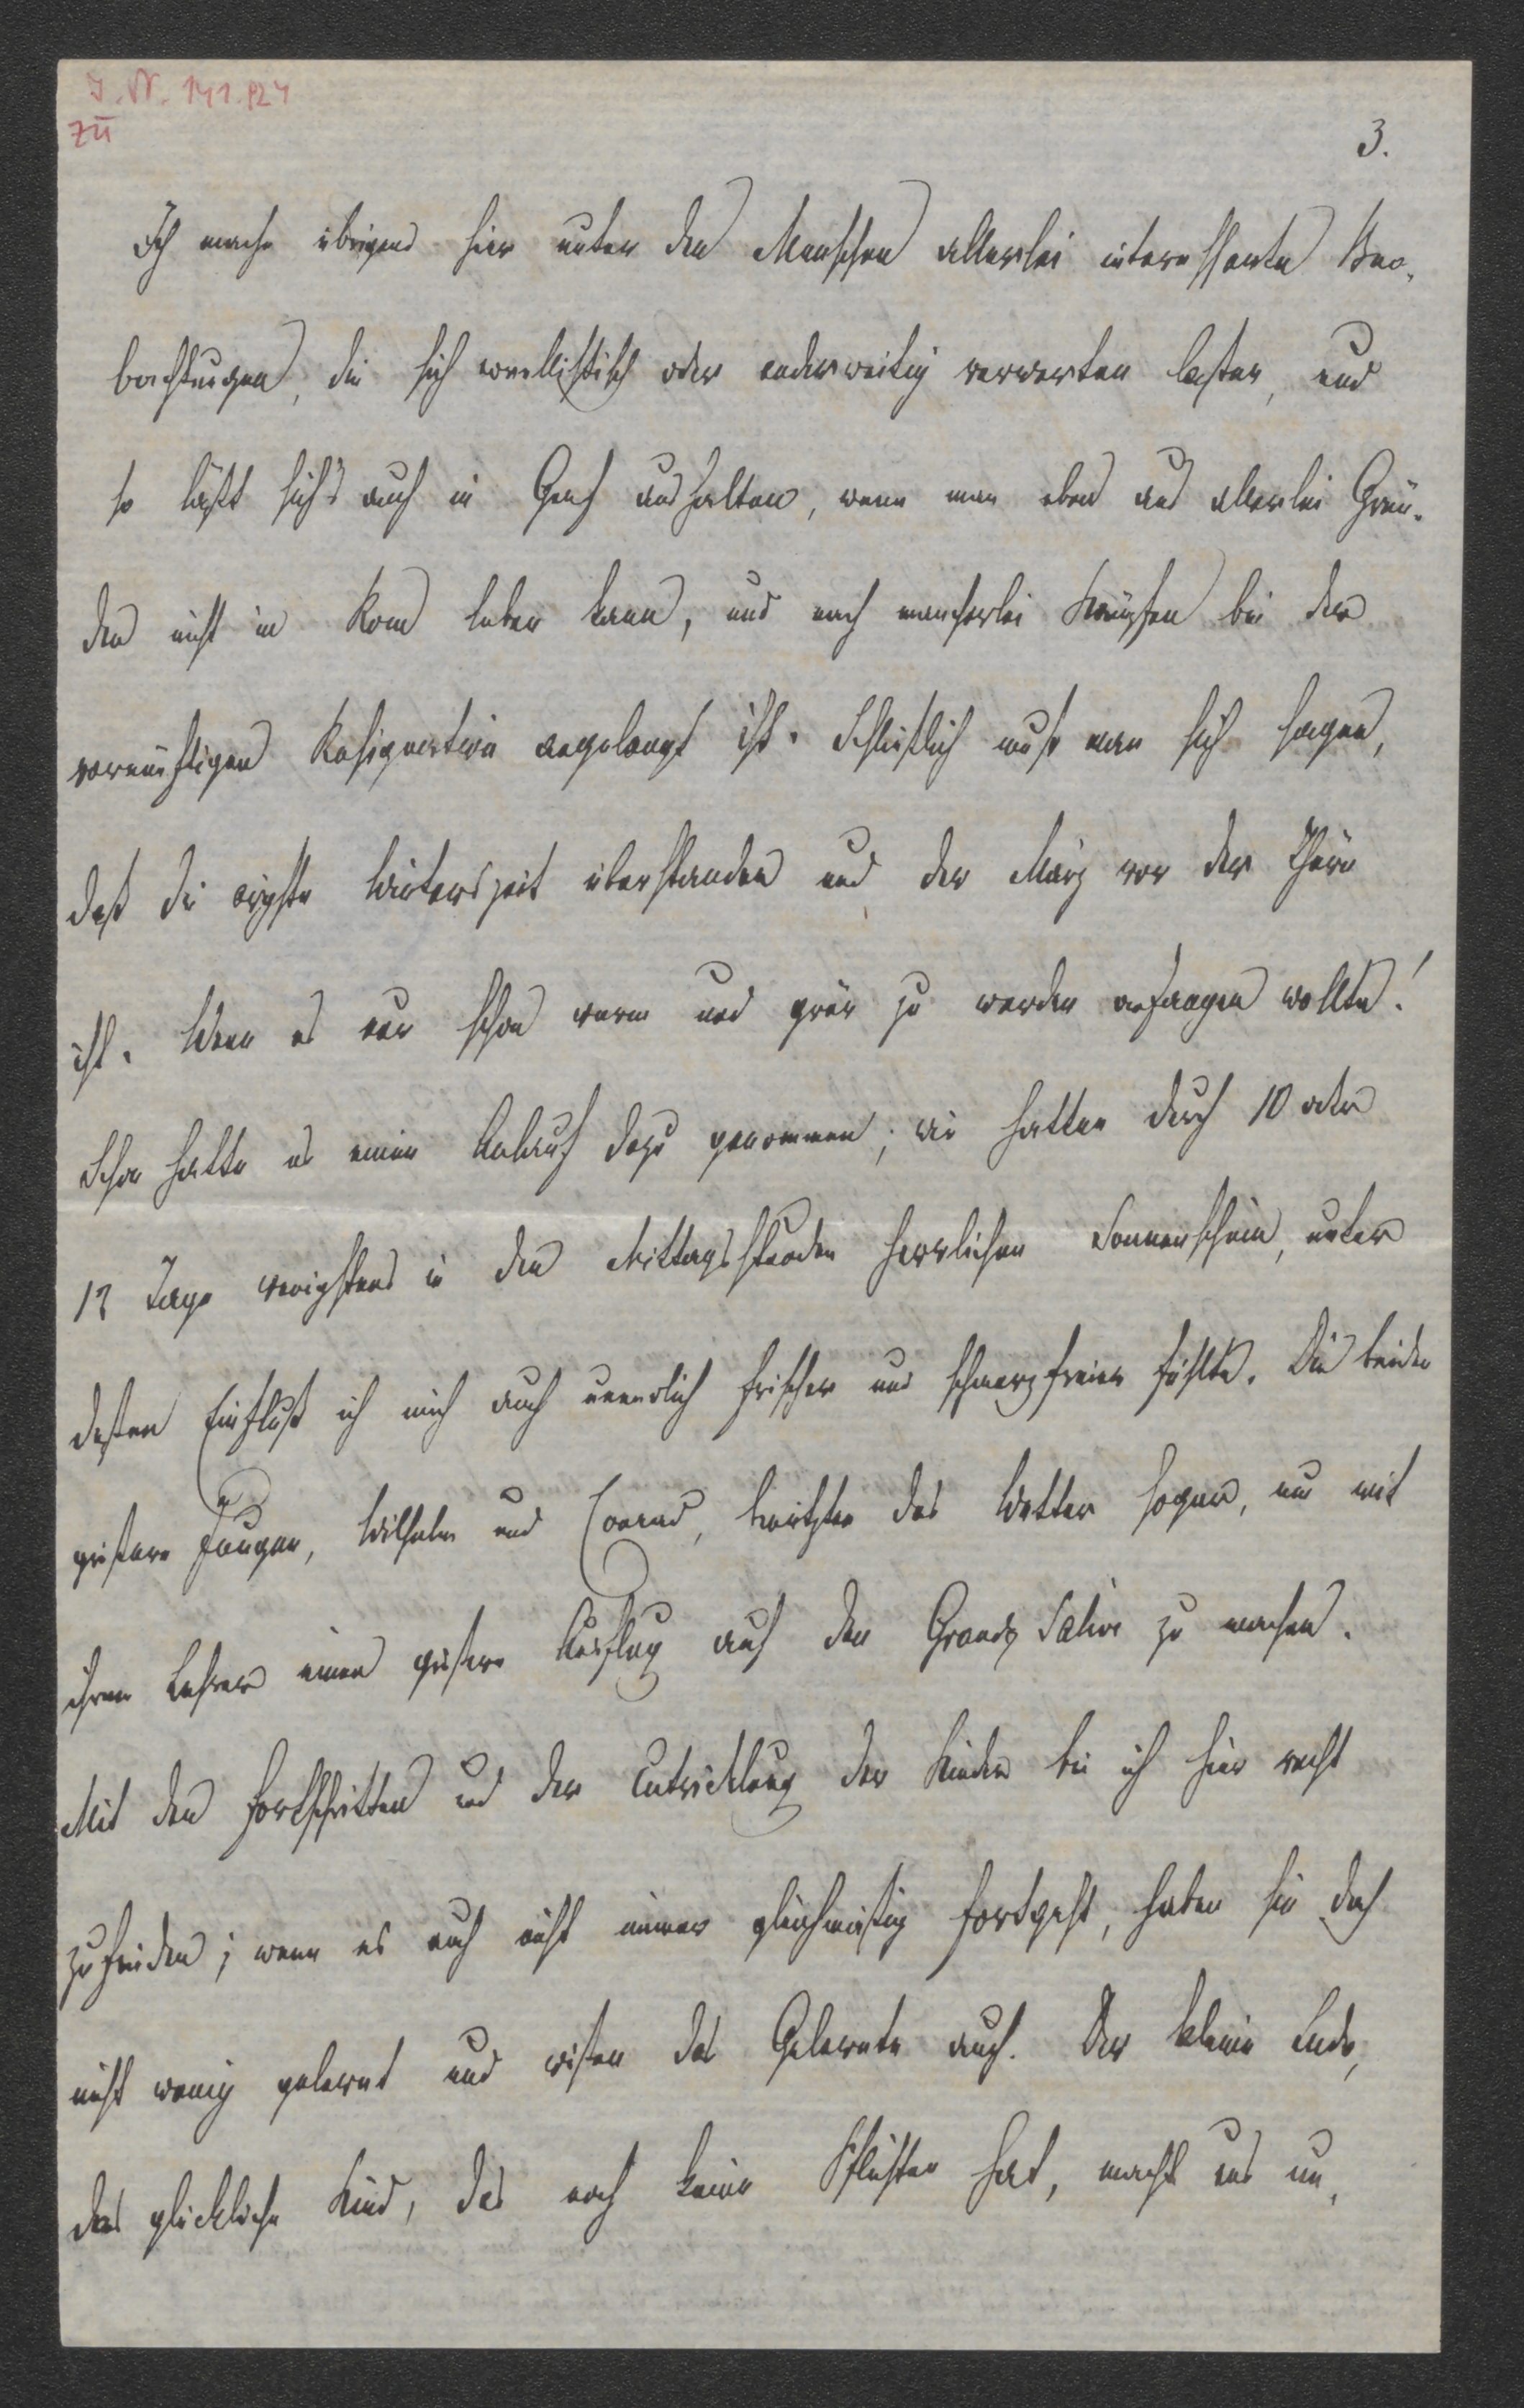 J. N. 141.924
zu
3.
Ich mache übrigens hier unter den Menschen allerlei interessante Beo-
bachtungen, die sich novellistisch oder anderweitig verwerten lassen, und
so läßt sich's auch in Genf aushalten, wenn man eben aus allerlei Grün-
den nicht in Rom leben kann, und nach mancherlei Kämpfen bei der
vernünftigen Resignation angelangt ist. Schließlich muß man sich sagen,
daß die ärgste Winterszeit überstanden und der März vor der Thüre
ist. Wenn es nur schon warm und grün zu werden anfangen wollte!
Schon hatte es einen Anlauf dazu genommen; wir hatten durch 10 oder
12 Tage wenigstens in den Mittagsstunden herrlichen Sonnenschein, unter
dessen Einfluß ich mich auch unendlich frischer und schmerzfreier fühlte. Die beiden
größeren Jungen, Wilhelm und Conrad, benützten das Wetter sogar, um mit
ihrem Lehrer einen größeren Ausflug auf den Grand Salève zu machen.
Mit den Fortschritten und der Entwicklung der Kinder bin ich hier recht
zufrieden; wenn es auch nicht immer gleichmäßig fortgeht, haben sie doch
nicht wenig gelernt und wissen das Gelernte auch. Der kleine
das glückliche Kind, das noch keine Pflichten hat, macht uns un-